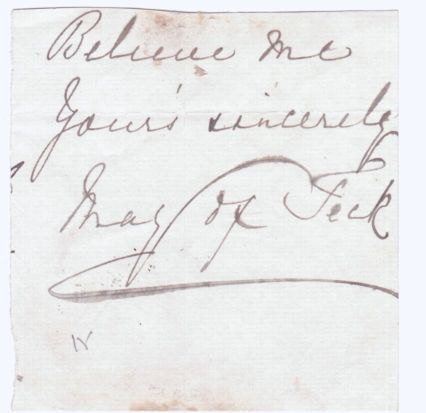 Believe me
Yours sincerely
May of Teck